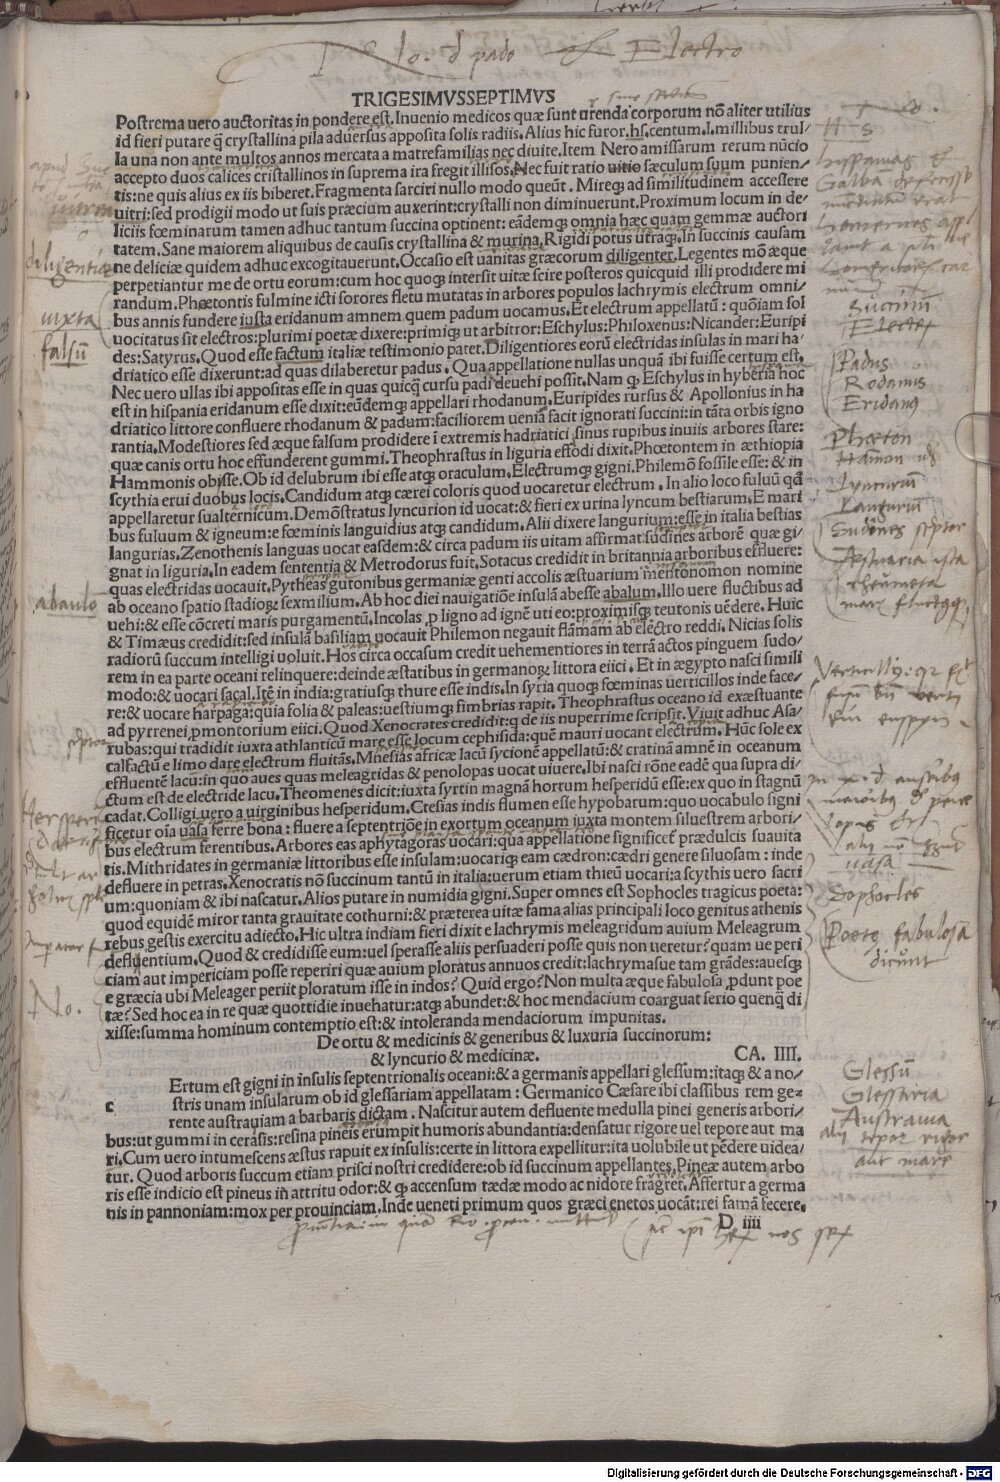 No. d pado & Electro
TRIGESIMVSSEPTIMVS
Postrema uero auctoritas in pondere est. Inuenio medicos quæ sunt urenda corporum nō aliter utilius
id fieri putare q̄ crystallina pila aduersus apposita solis radiis. Alius hic furor. hs. centum. l. millibus trul-
la una non ante multos annos mercata a matrefamilias nec diuite. Item Nero amissarum rerum nūcio
accepto duos calices cristallinos in suprema ira fregit illisos. Nec fuit ratio uitio sæculum suum punien-
tis: ne quis alius ex iis biberet. Fragmenta sarciri nullo modo queūt. Mireq; ad similitudinem accessere
uitri: sed prodigii modo ut suis præcium auxerint: crystalli non diminuerunt. Proximum locum in de-
liciis fœminarum tamen adhuc tantum succina optinent: eādemq; omnia hæc quam gemmæ auctori
tatem. Sane maiorem aliquibus de causis crystallina & murina. Rigidi potus utraq;. In succinis causam
ne deliciæ quidem adhuc excogitauerunt. Occasio est uanitas græcorum diligenter. Legentes mō æque
perpetiantur me de ortu eorum: cum hoc quoq; intersit uitæ scire posteros quicquid illi prodidere mi
randum. Phœtontis fulmine icti sorores fletu mutatas in arbores populos lachrymis electrum omni-
bus annis fundere iusta eridanum amnem quem padum uocamus. Et electrum appellatū: quōiam sol
uocitatus sit electros: plurimi poetæ dixere: primiq; ut arbitror: Eschylus: Philoxenus: Nicander: Euripi
des: Satyrus. Quod esse factum italiæ testimonio patet. Diligentiores eorū electridas insulas in mari ha-
driatico esse dixerunt: ad quas dilaberetur padus. Qua appellatione nullas unquā ibi fuisse certum est.
Nec uero ullas ibi appositas esse in quas quicq̄ cursu padi deuehi possit. Nam q; Eschylus in hyberia hoc
est in hispania eridanum esse dixit: eūdemq; appellari rhodanum. Euripides rursus & Apollonius in ha
driatico littore confluere rhodanum & padum: faciliorem ueniā facit ignorati succini: in tāta orbis igno
rantia. Modestiores sed æque falsum prodidere ī extremis hadriatici sinus rupibus inuiis arbores stare:
quæ canis ortu hoc effunderent gummi. Theophrastus in liguria effodi dixit. Phœtontem in æthiopia
Hammonis obisse. Ob id delubrum ibi esse atq; oraculum. Electrumq; gigni. Philemō fossile esse: & in
scythia erui duobus locis. Candidum atq; cærei coloris quod uocaretur electrum. In alio loco fuluū qđ
appellaretur sualternicum. Demōstratus lyncurion id uocat: & fieri ex urina lyncum bestiarum. E mari
bus fuluum & igneum: e fœminis languidius atq; candidum. Alii dixere langurium: esse in italia bestias
langurias. Zenothenis languas uocat easdem: & circa padum iis uitam affirmat: sudines arborē quæ gi-
gnat in liguria. In eadem sententia & Metrodorus fuit. Sotacus credidit in britannia arboribus effluere:
quas electridas uocauit. Pytheas gutonibus germaniæ genti accolis æstuarium mentonomon nomine
ab oceano spatio stadioꝝ sexmilium. Ab hoc diei nauigatiōe insulā abesse abalum. Illo uere fluctibus ad
uehi: & esse cōcreti maris purgamentū. Incolas p ligno ad ignē uti eo: proximisq; teutonis uēdere. Huic
& Timæus credidit: sed insulā basiliam uocauit Philemon negauit flāmam ab electro reddi. Nicias solis
radiorū succum intelligi uoluit. Hos circa occasum credit uehementiores in terrā actos pinguem sudo-
rem in ea parte oceani relinquere: deinde æstatibus in germanoꝝ littora eiici. Et in ægypto nasci simili
modo: & uocari sacal. Itē in india: gratiusq; thure esse indis. In syria quoq; fœminas uerticillos inde face-
re: & uocare harpaga: quia folia & paleas: uestiumq; fimbrias rapit. Theophrastus oceano id exæstuante
ad pyrrenei pmontorium eiici. Quod Xenocrates credidit: q de iis nuperrime scripsit. Viuit adhuc Asa-
rubas: qui tradidit iuxta athlanticū mare esse locum cephisida: quē mauri uocant electrum. Hūc sole ex
calfactū e limo dare electrum fluitās. Mnesias africæ locū sycionē appellatū: & cratinā amnē in oceanum
effluentē lacū: in quo aues quas meleagridas & penolopas uocat uiuere. Ibi nasci rōne eadē qua supra di-
ctum est de electride lacu. Theomenes dicit: iuxta syrtin magnā hortum hesperidū esse: ex quo in stagnū
cadat. Colligi uero a uirginibus hesperidum. Ctesias indis flumen esse hypobarum: quo uocabulo signi
ficetur oīa uasa ferre bona: fluere a septentriōe in exortum oceanum iuxta montem siluestrem arbori-
bus electrum ferentibus. Arbores eas aphytagoras uocari: qua appellatione significet prædulcis suauita
tis. Mithridates in germaniæ littoribus esse insulam: uocariq; eam cædron: cædri genere siluosam: inde
defluere in petras. Xenocratis nō succinum tantū in italia: uerum etiam thieū uocari: a scythis uero sacri
um: quoniam & ibi nascatur. Alios putare in numidia gigni. Super omnes est Sophocles tragicus poeta:
quod equidē miror tanta grauitate cothurni: & præterea uitæ fama alias principali loco genitus athenis
rebus gestis exercitu adiecto. Hic ultra indiam fieri dixit e lachrymis meleagridum auium Meleagrum
defluentium. Quod & credidisse eum: uel sperasse aliis persuaderi posse quis non ueretur? quam ue peri
ciam aut impericiam posse reperiri quæ auium ploratus annuos credit: lachrymasue tam grādes: auesq;
e græcia ubi Meleager periit ploratum isse in indos? Quid ergo? Non multa æque fabulosa pdunt poe
tæ? Sed hoc ea in re quæ quottidie inuehatur: atq; abundet: & hoc mendacium coarguat serio quenq̄ di
xisse: summa hominum contemptio est: & intoleranda mendaciorum impunitas.
De ortu & medicinis & generibus & luxuria succinorum:
& lyncurio & medicinæ. CA. IIII.
Ertum est gigni in insulis septentrionalis oceani: & a germanis appellari glessum: itaq; & a no-
c stris unam insularum ob id glessariam appellatam: Germanico Cæsare ibi classibus rem ge-
rente austrauiam a barbaris dictam. Nascitur autem defluente medulla pinei generis arbori-
bus: ut gummi in cerasis: resina pineis erumpit humoris abundantia: densatur rigore uel tepore aut ma
ri. Cum uero intumescens æstus rapuit ex insulis: certe in littora expellitur: ita uolubile ut pēdere uidea-
tur. Quod arboris succum etiam prisci nostri credidere: ob id succinum appellantes. Pineæ autem arbo
ris esse indicio est pineus iñ attritu odor: & q; accensum tædæ modo ac nidore fragret. Affertur a germa
nis in pannoniam: mox per prouinciam. Inde ueneti primum quos græci enetos uocāt: rei famā fecere.
D iiii
diligentiæ
iuxta
falsū
abaulo
No.
H S
Succinū
Padus
Rodanus
Eridanus
Phœton
Lyncuriū
Languriū
Sophocles
Poetę fabulosa
dicunt
Glessū
Glessaria
Austrauia
aut mare
Digitalisierung gefördert durch die Deutsche Forschungsgemeinschaft - DFG